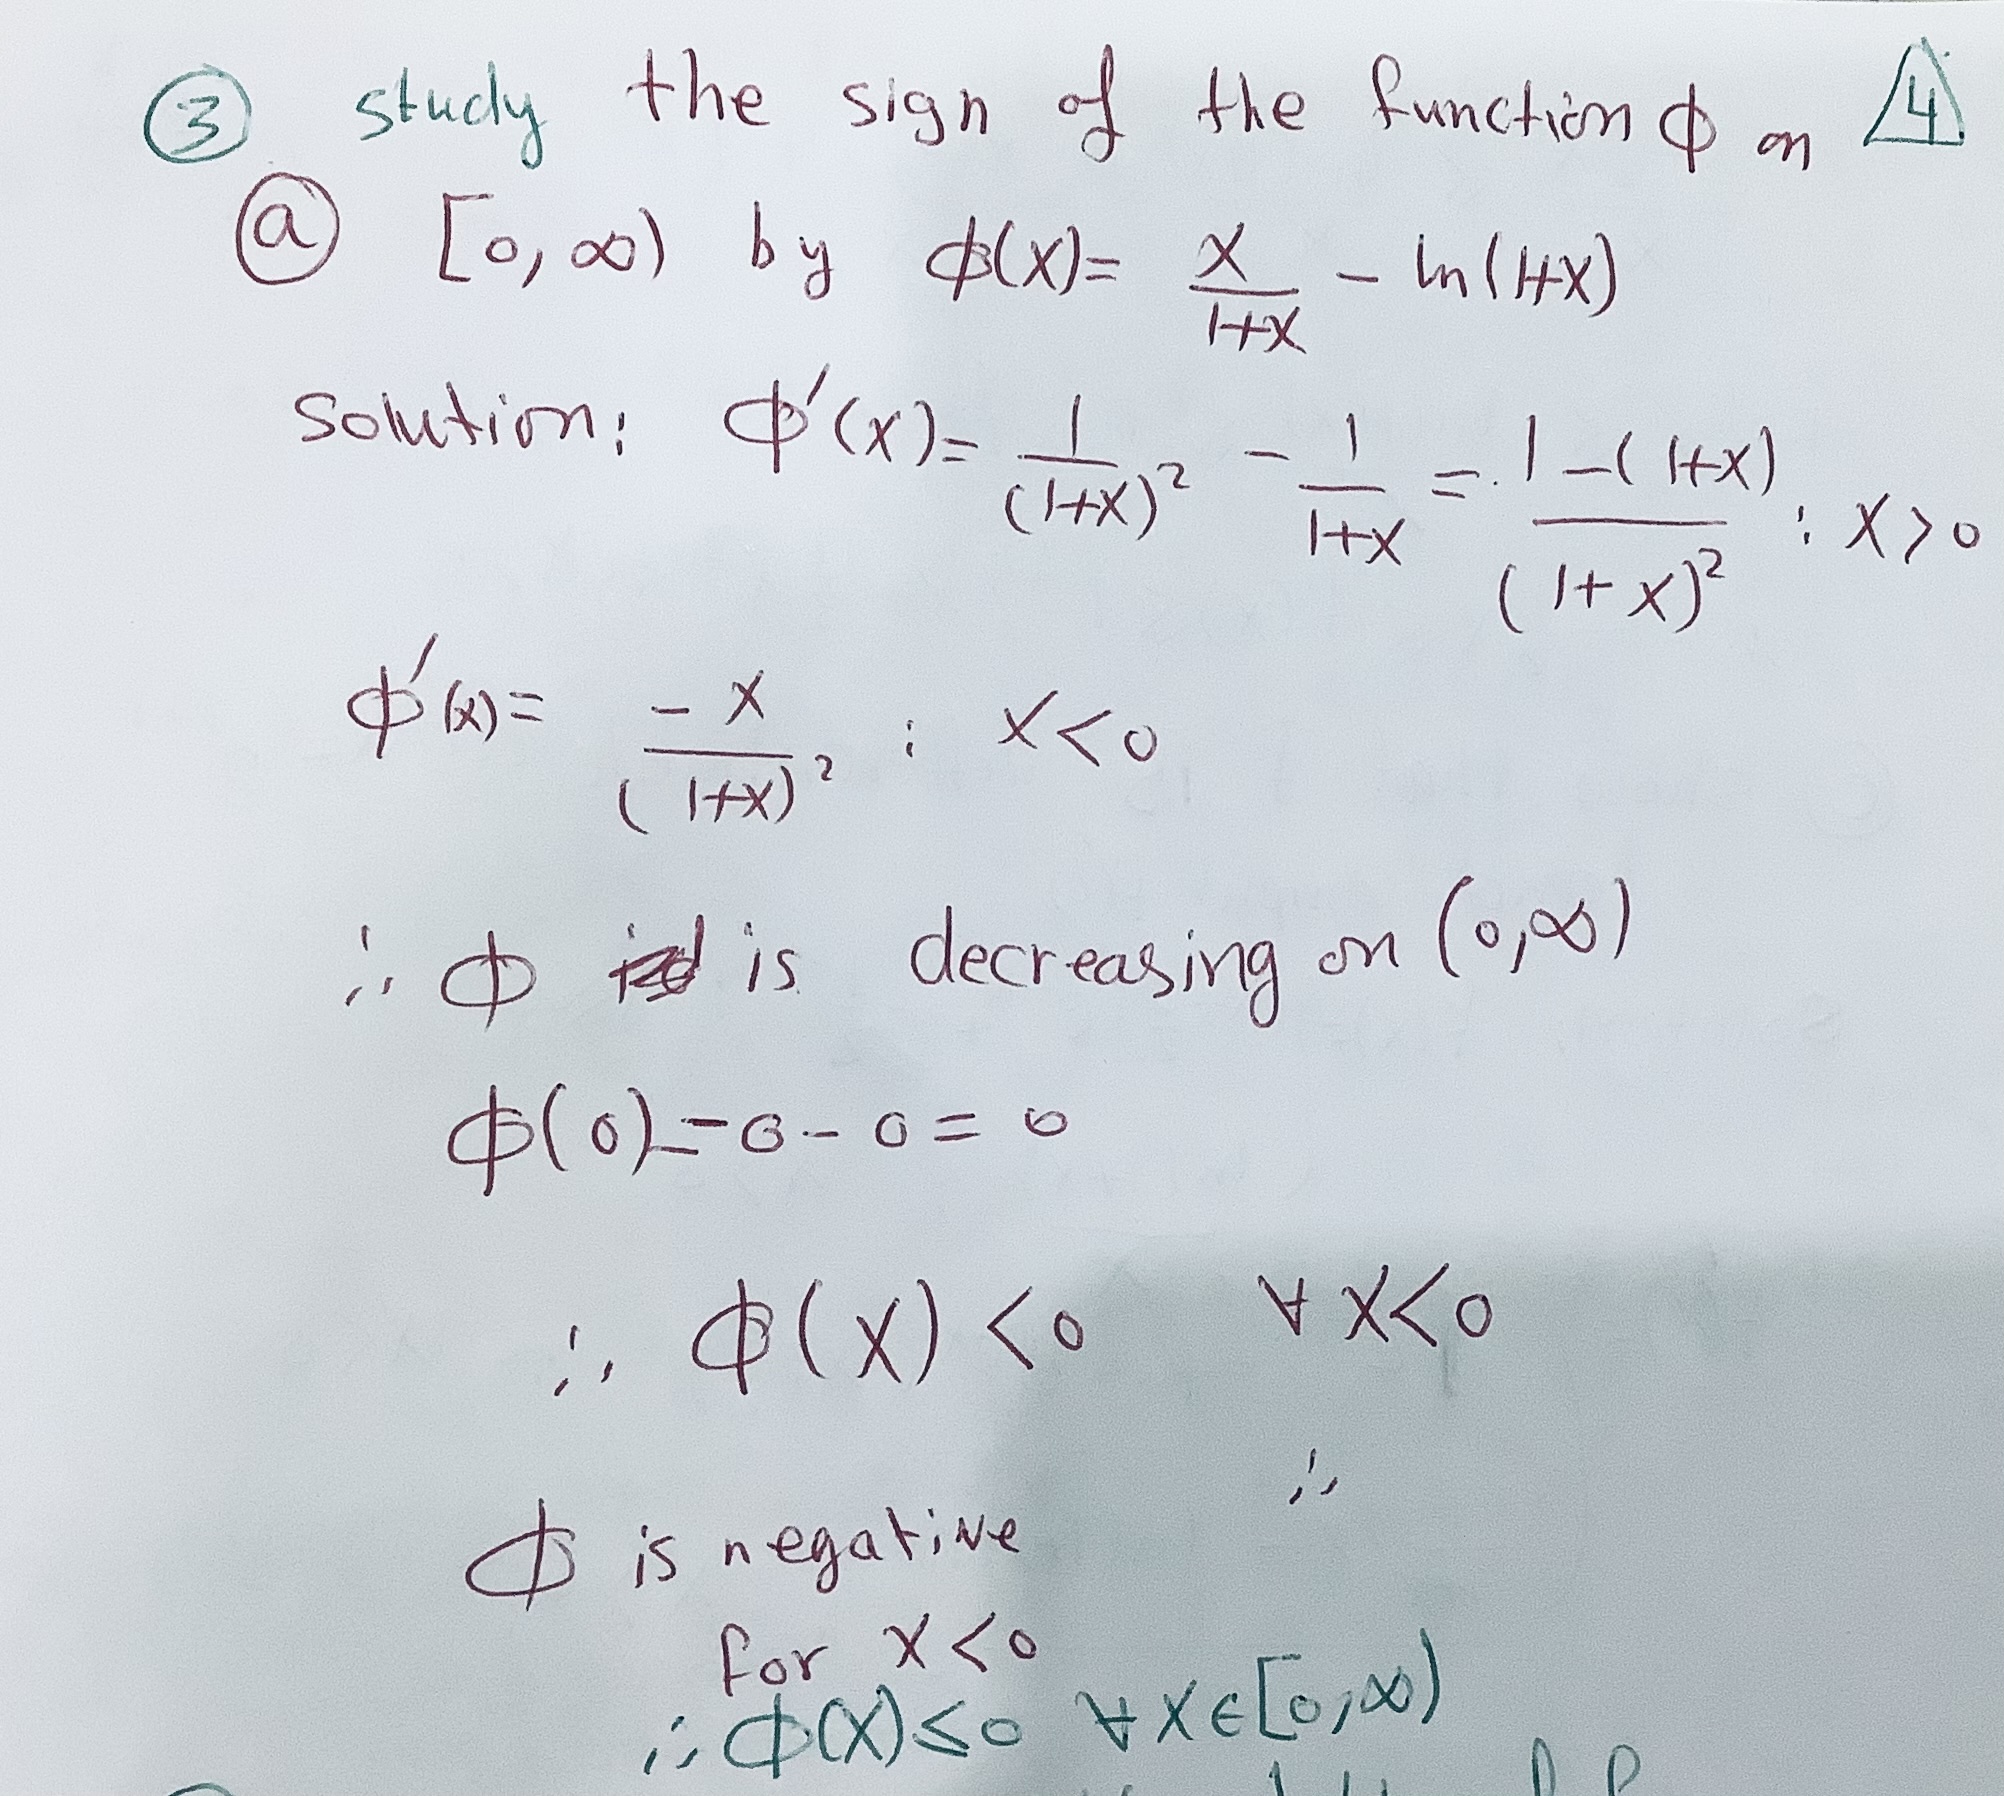 ③ study the sign of the function ϕ on 4
ⓐ [0,∞) by ϕ(x)= x/(1+x) - ln(1+x)
Solution: ϕ'(x)= 1/(1+x)² - 1/(1+x) = 1-(1+x)/(1+x)² : x>0
ϕ'(x)= -x/(1+x)² : x<0
∴ ϕ is decreasing on (0,∞)
ϕ(0)=0-0=0
∴ ϕ(x)<0 ∀ x<0
∴
ϕ is negative
for x<0
∴ ϕ(x)≤0 ∀ x∈[0,∞)